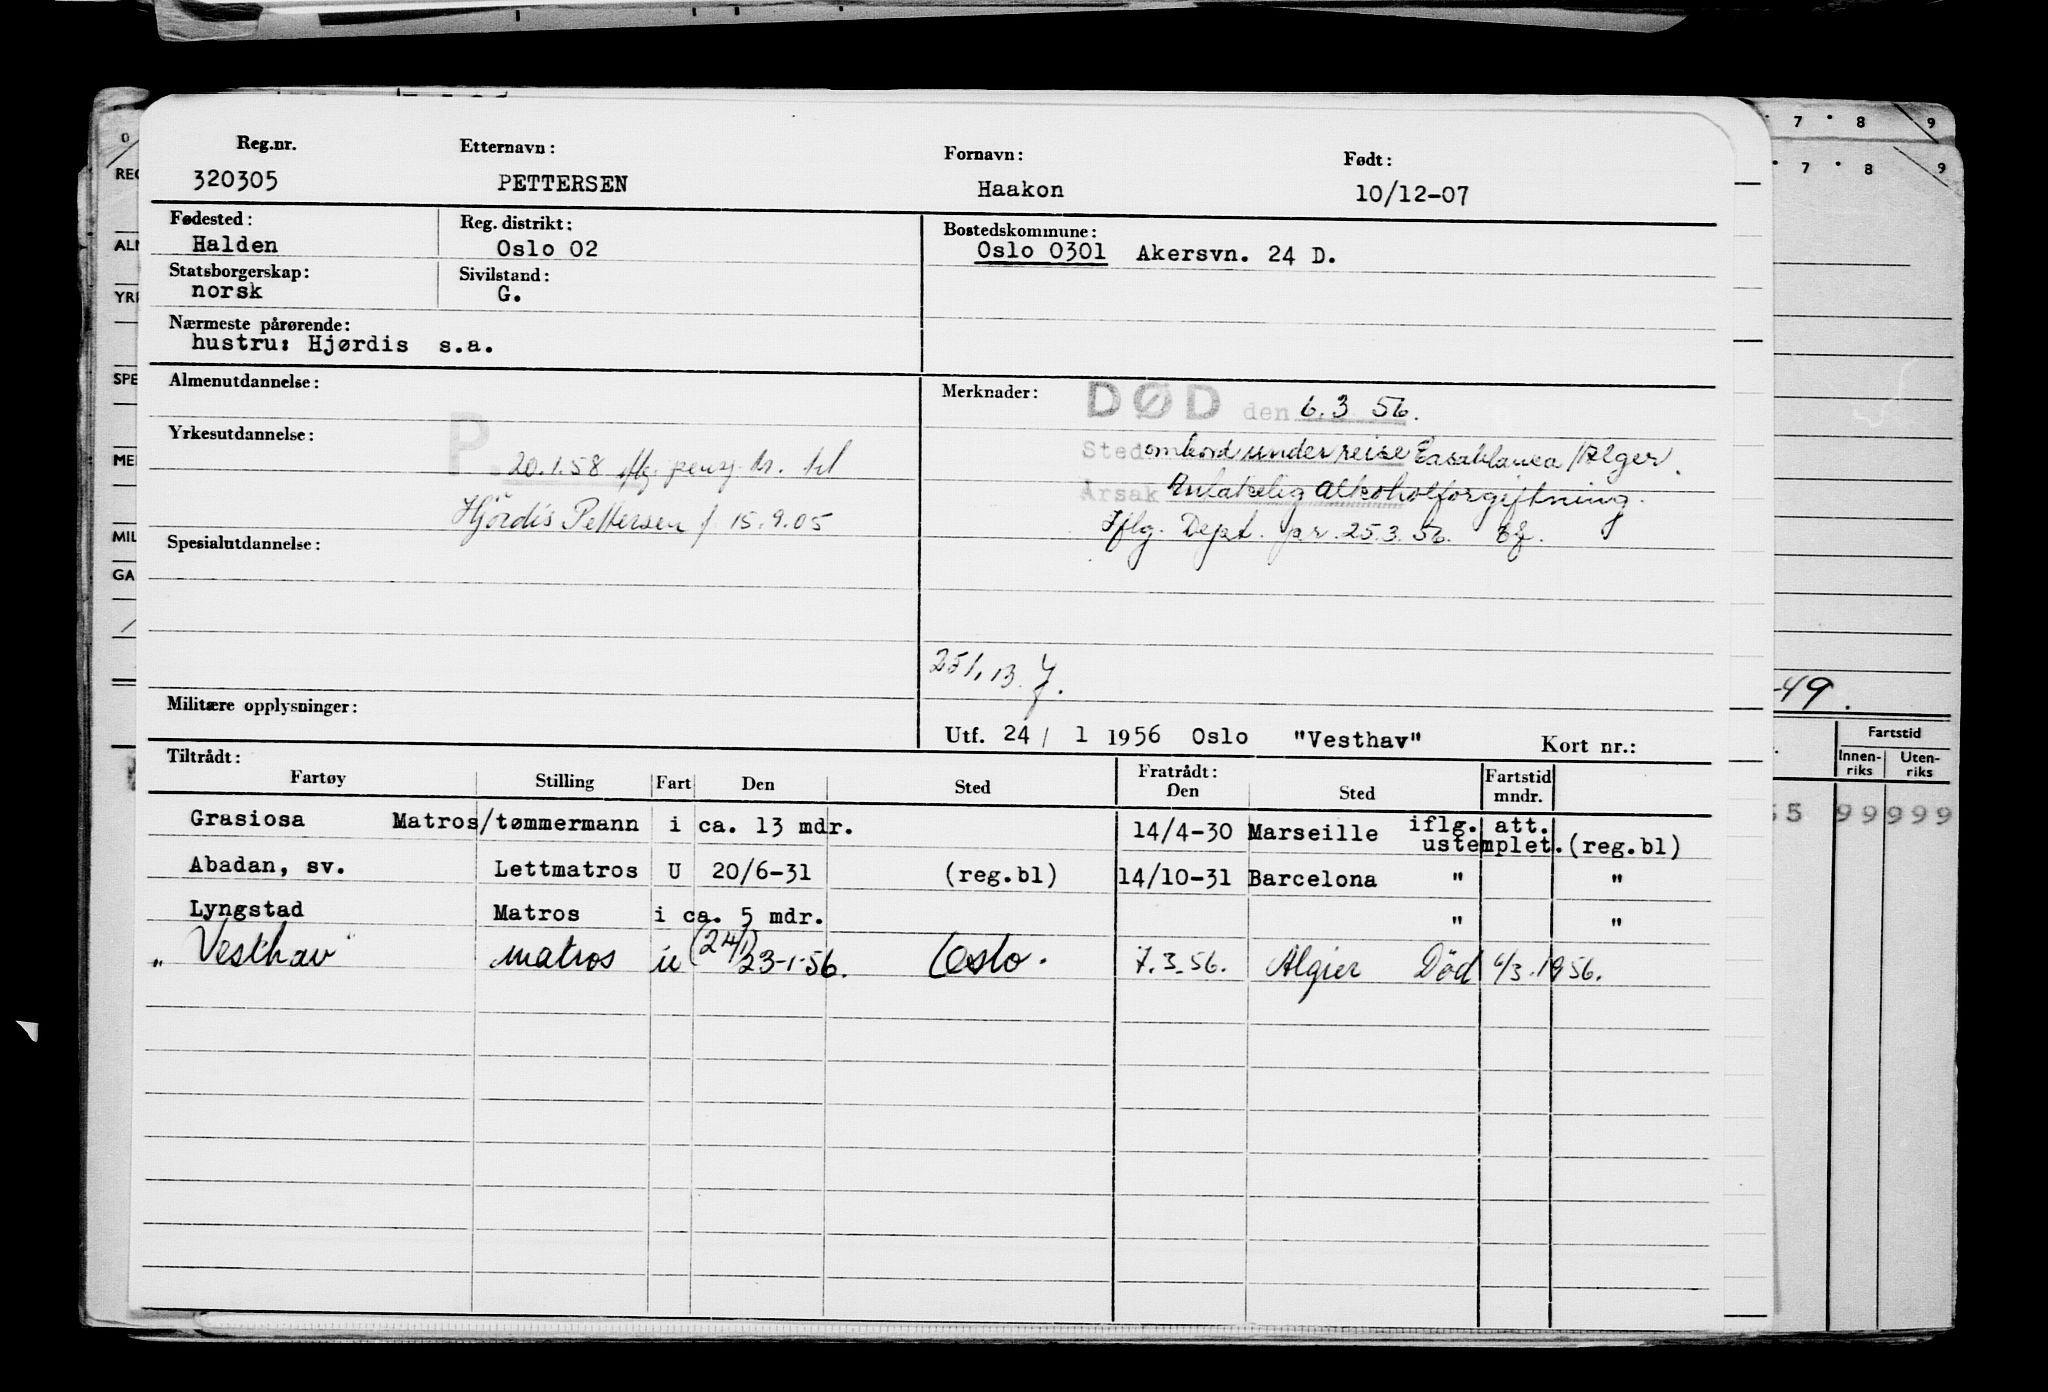 Reg.nr. Etternavn: Fornavn: Født:
320305 PETTERSEN Haakon 10/12-07
Fødested: Reg. distrikt: Bostedskommune:
Halden Oslo 02 Oslo 0301 Akersvn. 24 D.
Statsborgerskap: Sivilstand:
norsk G.
Nærmeste pårørende:
hustru: Hjørdis s.a.
Almenutdannelse: Merknader: DØD den 6.3 56.
Yrkesutdannelse: Sted ombord under reise Casablanca / Alger.
P. 20.1.58 til
Årsak Antakelig alkoholforgiftning.
Hjördis Pettersen f. 15.9.05
Iflg. Dept. pr. 25.3.56.
Spesialutdannelse:
Militære opplysninger:
Utf. 24 / 1 1956 Oslo "Vesthav" Kort nr.:
Tiltrådt: Fratrådt: Fartstid
Fartøy Stilling Fart Den Sted Den Sted mndr.
Grasiosa Matros/tømmermann i ca. 13 mdr. 14/4-30 Marseille iflg. att.
ustemplet. (reg.bl)
Abadan, sv. Lettmatros U 20/6-31 (reg.bl) 14/10-31 Barcelona " "
Lyngstad Matros i ca. 5 mdr. " "
"Vesthav" matros u (24/1) 23-1-56. Oslo. 7.3.56. Algier Död 6/3.1956.
0 7 8 9
7 8 9
REG
ALM
YRK
SPE
MEI
MIL
GA
-49.
Fartstid
Innen-riks Uten-riks
55 99999